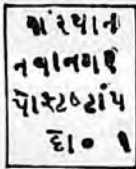 સંસ્થાન
નવાનગર
પોસ્ટષ્ટાંપ
દો૦ ૧